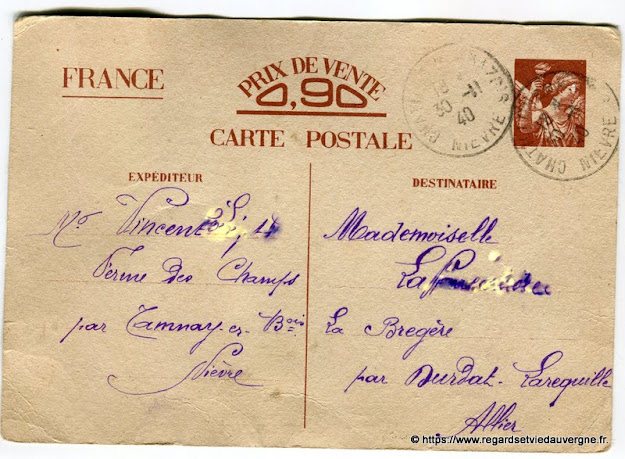 FRANCE
PRIX DE VENTE
0,90
CARTE POSTALE
CHAT NIÈVRE
30 -11
40
EXPÉDITEUR
Mr Vincent
Ferme des Champs
par Tamnay-en-Bois
Nièvre
DESTINATAIRE
Mademoiselle
La Bregère
par Durdat-Larequille
Allier
© https://www.regardsetviedauvergne.fr.